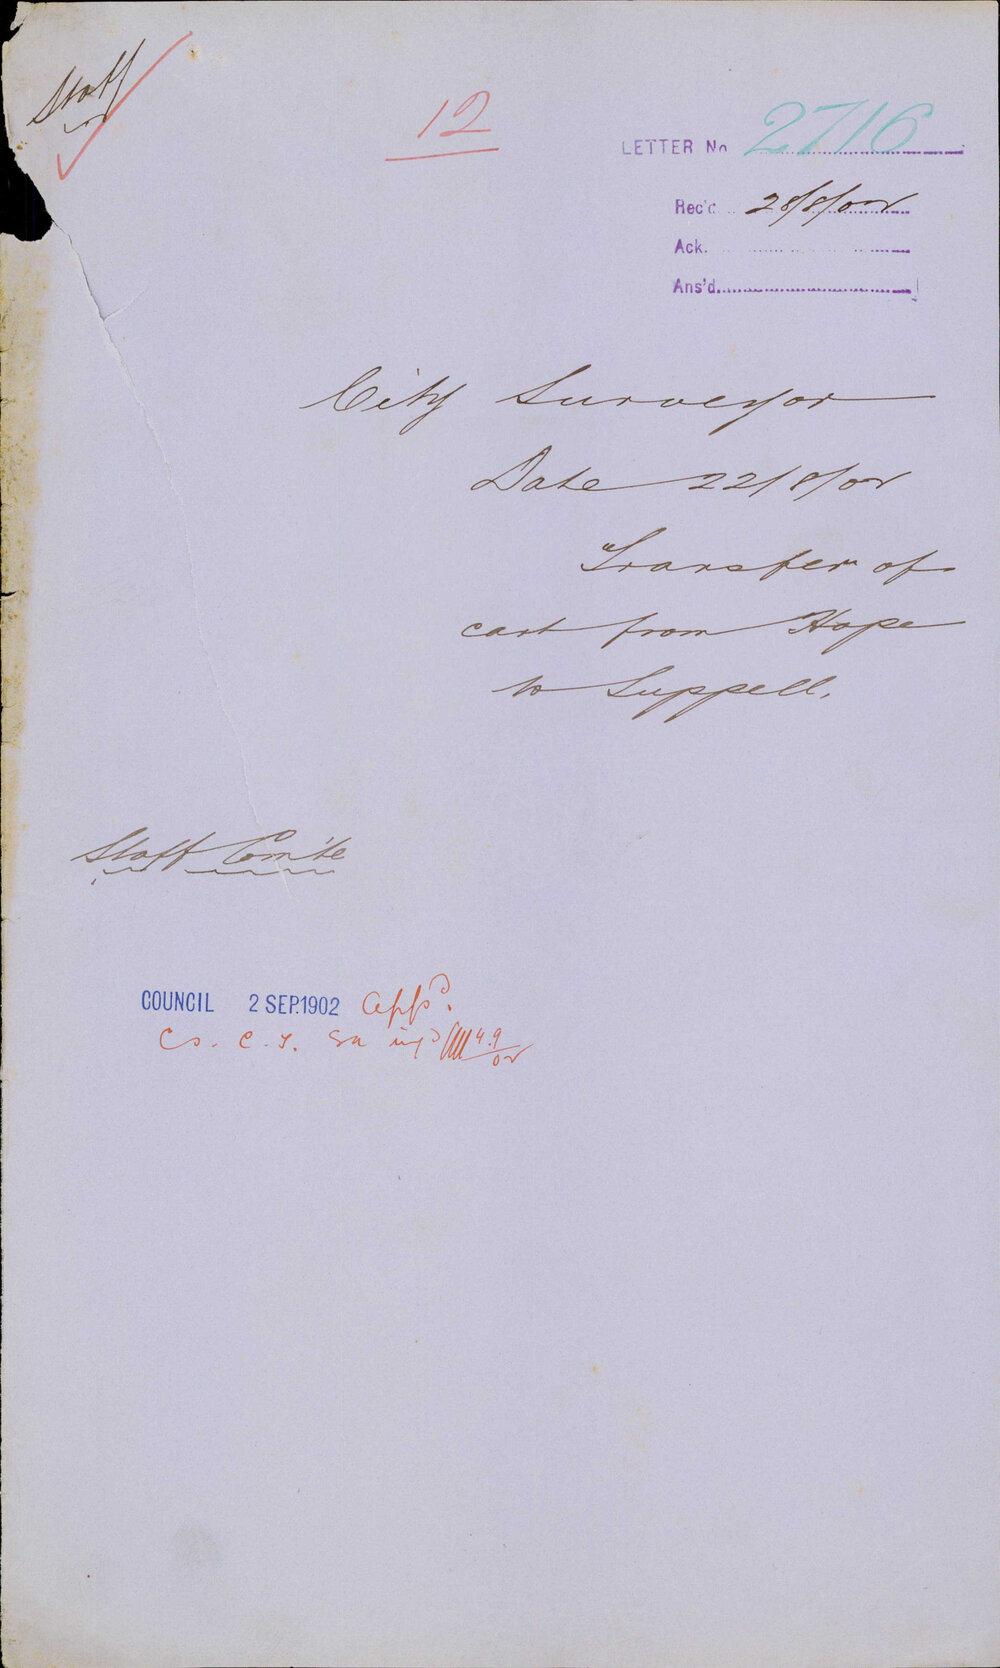 Staff
12
LETTER No 2716
Rec'd 28/8/02
Ack.
Ans'd.
City Surveyor
Date 22/8/02
Transfer of
cart from Hope
to Suppell.
Staff Com'te
COUNCIL 2 SEP. 1902 Appd.
Cs. C. T. inf'd 4.9/02